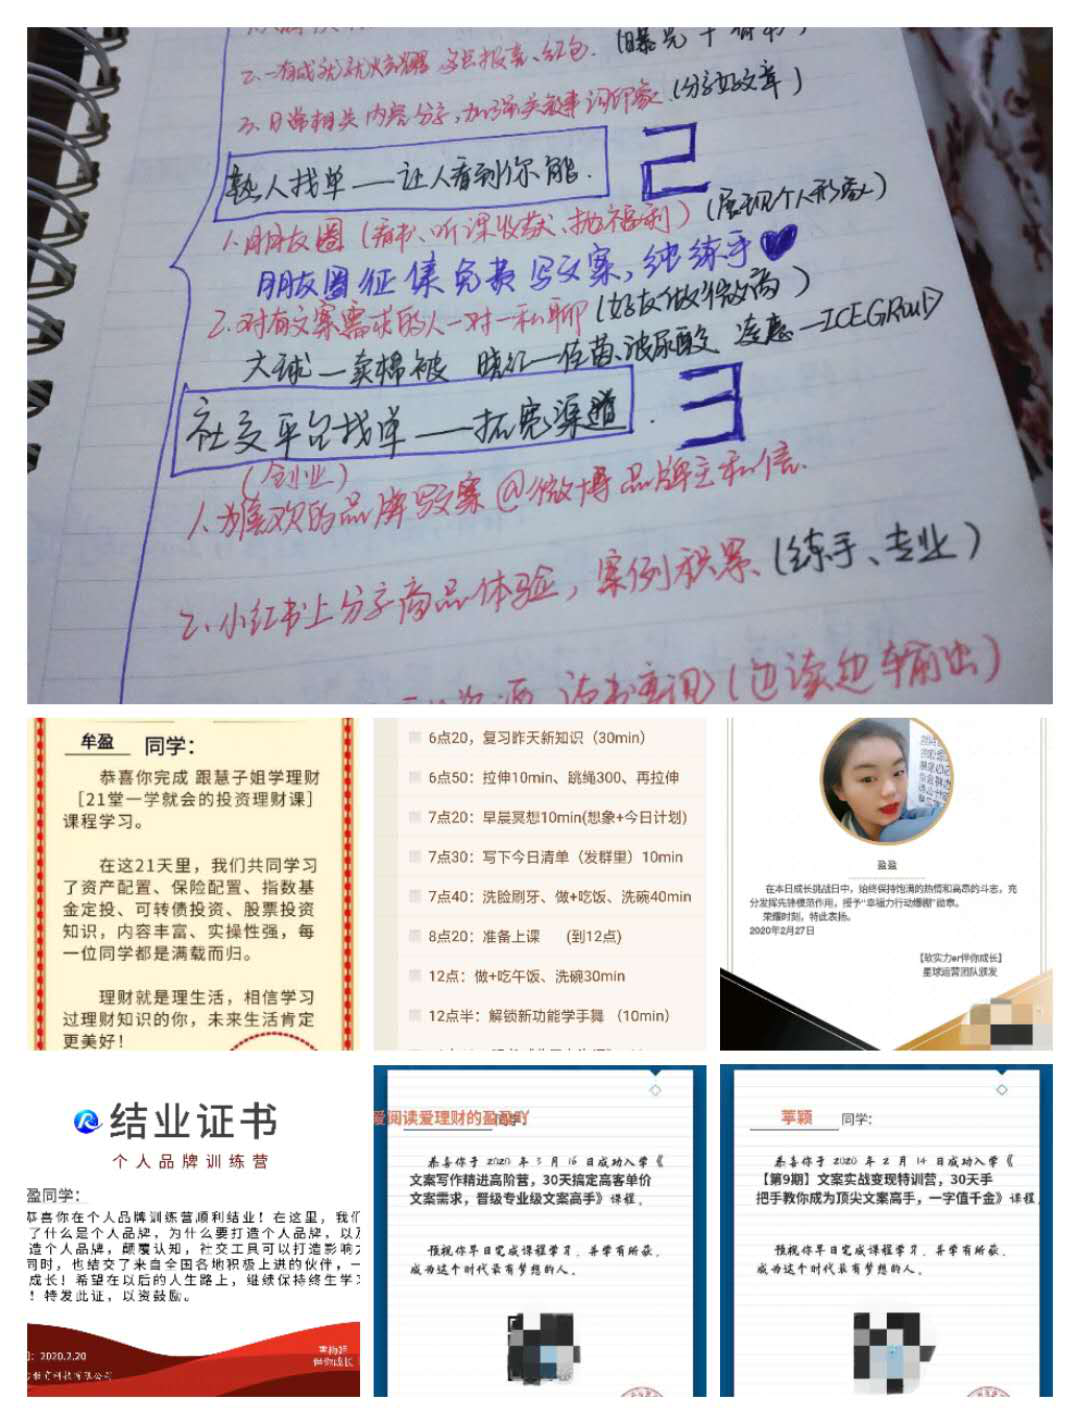 2.一有成就就炫耀 多点报喜、红包.
3.日常相关内容分享,加强关键事词印象(分享好文章)
熟人找单——让人看到你能. 2
1.朋友圈(看书、听课收获、抛福利)(展现个人形象)
朋友圈征集免费写文案,纯练手
2.对有文案需求的人一对一私聊(好友做微商)
大球—卖棉被 晓江— 玻尿酸 凌惠—ICEGROUD
社交平台找单——拓宽渠道. 3
(创业)
1.为喜欢的品牌写文案@微博品牌主私信.
2.小红书上分享商品体验,案例积累(练手、专业)
(边读边输出)
牟盈 同学:
恭喜你完成 跟慧子姐学理财
[21堂一学就会的投资理财课]
课程学习。
在这21天里,我们共同学习
了资产配置、保险配置、指数基
金定投、可转债投资、股票投资
知识,内容丰富、实操性强,每
一位同学都是满载而归。
理财就是理生活,相信学习
过理财知识的你,未来生活肯定
更美好!
6点20,复习昨天新知识(30min)
6点50:拉伸10min、跳绳300、再拉伸
7点20:早晨冥想10min(想象+今日计划)
7点30:写下今日清单(发群里)10min
7点40:洗脸刷牙、做+吃饭、洗碗40min
8点20:准备上课 (到12点)
12点:做+吃午饭、洗碗30min
12点半:解锁新功能学手舞 (10min)
盈盈
在本日成长挑战日中,始终保持饱满的热情和高昂的斗志,充
分发挥先锋模范作用,授予“幸福力行动爆棚”勋章。
荣耀时刻,特此表扬。
2020年2月27日
【软实力er伴你成长】
星球运营团队颁发
结业证书
个人品牌训练营
盈同学:
恭喜你在个人品牌训练营顺利结业!在这里,我们
了什么是个人品牌,为什么要打造个人品牌,以及
造个人品牌,颠覆认知,社交工具可以打造影响力
同时,也结交了来自全国各地积极上进的伙伴,一
成长!希望在以后的人生路上,继续保持终生学习
!特发此证,以资鼓励。
:2020.2.20
教育科技有限公司
伴你成长
爱阅读爱理财的盈盈吖 同学:
恭喜你于 2020 年 3 月 16 日成功入学《
文案写作精进高阶营,30天搞定高客单价
文案需求,晋级专业级文案高手》课程。
预祝你早日完成课程学习,并学有所获,
成为这个时代最有梦想的人。
莘颖 同学:
恭喜你于 2020 年 2 月 14 日成功入学《
【第9期】文案实战变现特训营,30天手
把手教你成为顶尖文案高手,一字值千金》课程。
预祝你早日完成课程学习,并学有所获,
成为这个时代最有梦想的人。